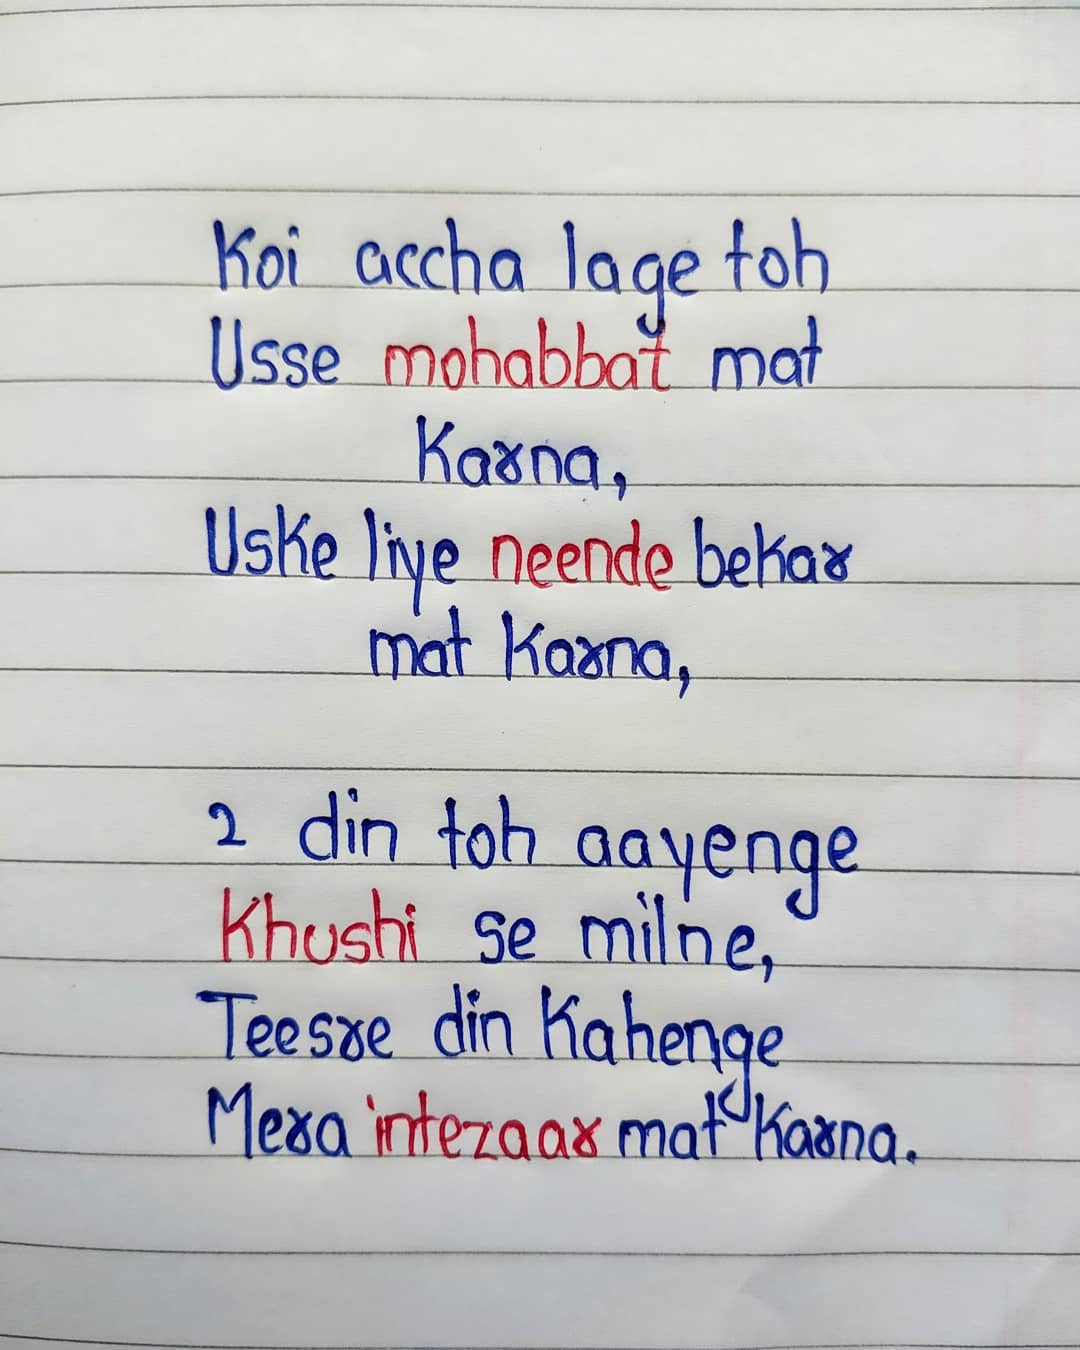 Koi accha lage toh
Usse mohabbat mat
Karna,
Uske liye neende bekar
mat Karna,
2 din toh aayenge
Khushi se milne,
Teesre din Kahenge
Mera intezaar mat Karna.